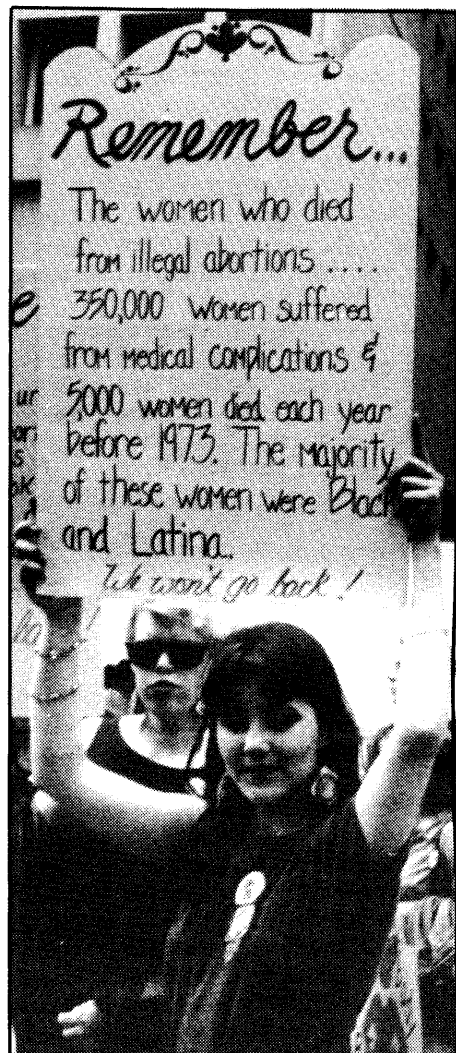 Remember...
The women who died
from illegal abortions ....
350,000 women suffered
from medical complications &
5,000 women died each year
before 1973. The majority
of these women were Black
and Latina.
We won't go back!